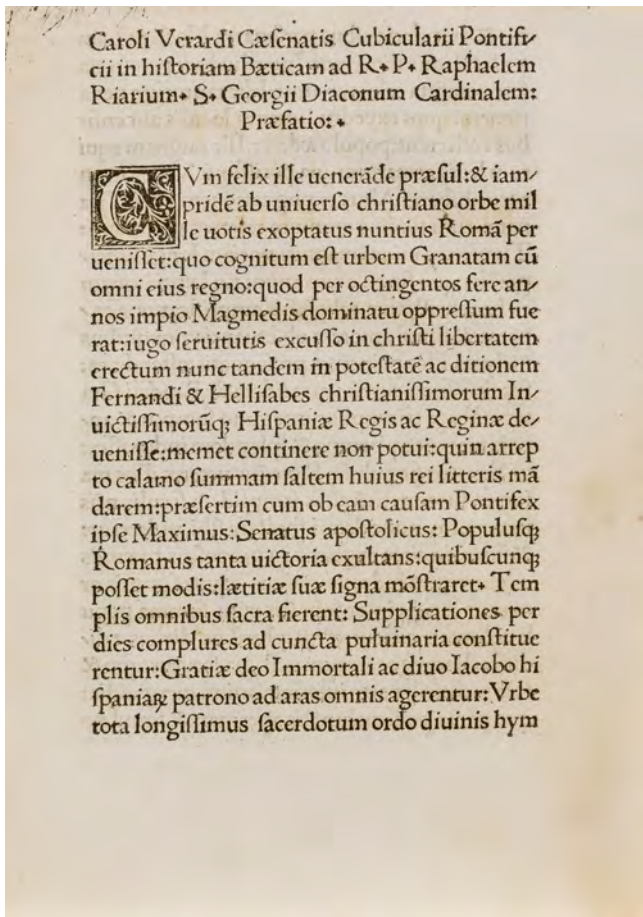 Caroli Verardi Cæſenatis Cubicularii Pontifi/
cii in hiſtoriam Bæticam ad R. P. Raphaelem
Riarium. S. Georgii Diaconum Cardinalem:
Præfatio: .
CVm felix ille uenerāde præſul:& iam/
pridē ab uniuerſo chriſtiano orbe mil
le uotis exoptatus nuntius Romā per
ueniſſet:quo cognitum eſt urbem Granatam cū
omni eius regno:quod per octingentos fere an/
nos impio Magmedis dominatu oppreſſum fue
rat:iugo ſeruitutis excuſſo in chriſti libertatem
erectum nunc tandem in poteſtatē ac ditionem
Fernandi & Helliſabes chriſtianiſſimorum In/
uictiſſimorūqꝫ Hiſpaniæ Regis ac Reginæ de/
ueniſſe:memet continere non potui:quin arrep
to calamo ſummam ſaltem huius rei litteris mā
darem:præſertim cum ob eam cauſam Pontifex
ipſe Maximus:Senatus apoſtolicus: Populuſqꝫ
Romanus tanta uictoria exultans:quibuſcunqꝫ
poſſet modis:lætitiæ ſuæ ſigna mōſtraret. Tem
plis omnibus ſacra fierent: Supplicationes per
dies complures ad cuncta puluinaria conſtitue
rentur:Gratiæ deo Immortali ac diuo Iacobo hi
ſpaniaꝝ patrono ad aras omnis agerentur:Vrbe
tota longiſſimus ſacerdotum ordo diuinis hym